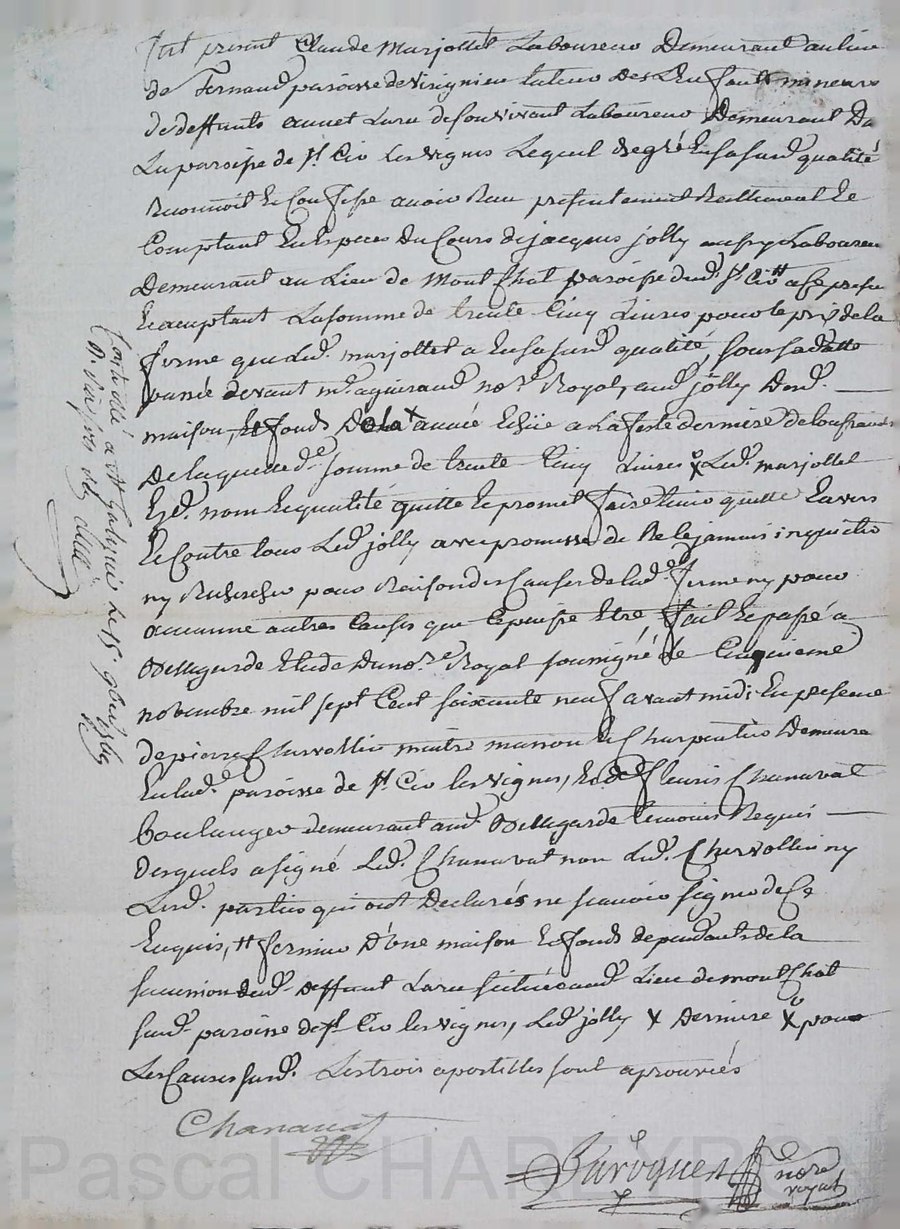 fut present Claude Marjollet Laboureur Demeurant au lieu
de Fernand paroisse de virignieu tuteur des Enfants mineurs
de deffunts annet Larue de son vivant Laboureur Demeurant Da
La paroisse de st Cir les vignes Lequel de gré En sa susd. qualité
Reconnoit Et Confesse avoir Recu presentement Reellement Et
Comptant En Especes du Cours de jacques jolly aussy Laboureur
Demeurant au Lieu de Mont Chat paroisse dud. st Cir # a Ce present
Acceptant La somme de trente Cinq Livres pour le prix de la
ferme que Led. marjollet a En sa susd. qualité, sous sa datte
passé devant me aguiraud nore Royal, aud. jolly Dond.
maison, Et fonds De la x année Echüe a La feste derniere de
De laquelle de. somme de trente Cinq Livres x Led. marjollet
Esd. nom Et qualité quitte Et promet faire tenir quitte Envers
Et Contre tous Led. jolly avec promesse de Ne le jamais inquieter
ny Rechercher pour Raison des Causes de lad. ferme ny pour
aucunne autres Causes que Ce puisse Etre fait Et passé a
Bellegarde Etude du nore Royal soussigné Le Cinquieme
novembre mil sept Cent soixante neuf avant midi En presence
de pierre Chervollin maitre masson Et Charpentier Demeure
En lad. paroisse de st Cir les vignes, Et de fleuris Chanavat
boulanger demeurant aud. Bellegarde temoins Requis
Desquels a signé Led. Chanavat non Led. Chervollin ny
Lesd. parties qui ont Declarés ne scavoir signer de Ce
Enquis, # fermier D'une maison Et fonds dependants de la
succession dud. deffunt Larue situés aud. Lieu de mont Chat
susd. paroisse de st Cir les vignes, Led. jolly x Derniere x pour
Les Causes susd. Les trois apostilles sont aprouvées
Chanavat
Barogues
nore
royal
Controllé a st Galmier Le 15 9bre 1769
R. six sols
Pascal CHARLYRO